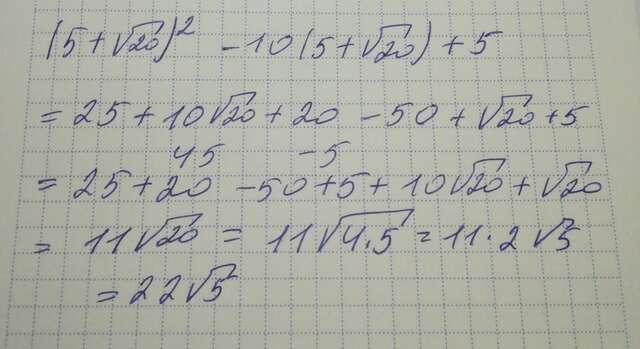 (5+√20)² -10(5+√20)+5
=25+10√20+20-50+√20+5
45 -5
=25+20 -50+5+10√20+√20
= 11√20 = 11√4·5 = 11·2√5
=22√5